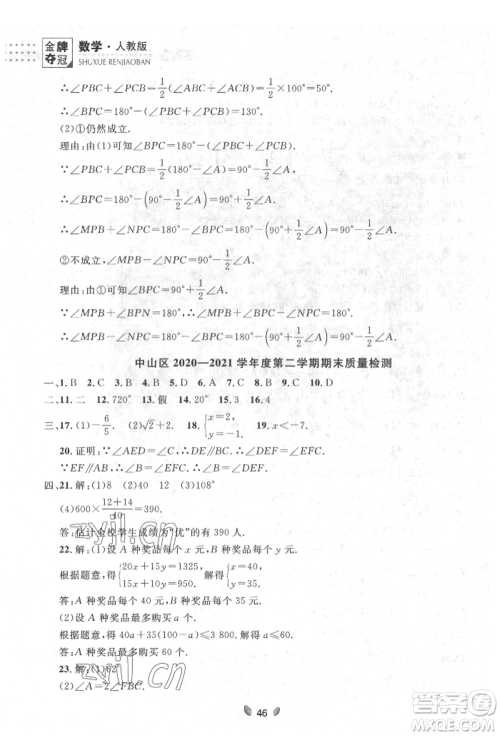 金牌夺冠 数学·人教版
SHUXUE RENJIAOBAN
∴∠PBC+∠PCB=1/2(∠ABC+∠ACB)=1/2×100°=50°.
∴∠BPC=180°-(∠PBC+∠PCB)=130°.
(2)①仍然成立.
理由:由(1)可知∠BPC=180°-(∠PBC+∠PCB).
∵∠PBC+∠PCB=1/2(∠ABC+∠ACB)=1/2(180°-∠A)=90°-1/2∠A.
∴∠BPC=180°-(90°-1/2∠A)=90°+1/2∠A.
∴∠MPB+∠NPC=180°-∠BPC=180°-(90°+1/2∠A)=90°-1/2∠A.
∴∠MPB+∠NPC=90°-1/2∠A.
②不成立,∠MPB-∠NPC=90°-1/2∠A.
理由:由①可知∠BPC=90°+1/2∠A.
∵∠MPB+∠BPN=180°,∠BPN=∠BPC-∠NPC.
∴∠MPB-∠NPC=180°-∠BPC=180°-(90°+1/2∠A)=90°-1/2∠A.
∴∠MPB-∠NPC=90°-1/2∠A.
中山区2020—2021学年度第二学期期末质量检测
一、1.B 2.C 3.A 4.C 5.D 6.B 7.A 8.B 9.C 10.D
二、11.二 12.720° 13.假 14. 15.16 16.4
三、17.(1)-6/5 (2)√2+2. 18.{x=2, y=-1 19.x<-7.
20.证明:∵∠AED=∠C,∴DE∥BC.∴∠ADE=∠B.
∵EF∥AB,∴∠B=∠EFC.∴∠ADE=∠EFC.
四、21.解:(1)8 (2)40 12 (3)108°
(4)600×(12+14)/40=390(人).
答:估计全校学生成绩为“优”的有390人.
22.解:(1)设A种奖品每个x元,B种奖品每个y元.
根据题意,得{20x+15y=1325, 15x+10y=950. 解得{x=40, y=35.
答:A种奖品每个40元,B种奖品每个35元.
(2)设A种奖品最多购买a个.
根据题意,得40a+35(100-a)≤3800.解得a≤60.
答:A种奖品最多购买60个.
23.解:(1)62°
(2)∠A=2∠FBC.
46
zyjl.cn
zyjl.cn